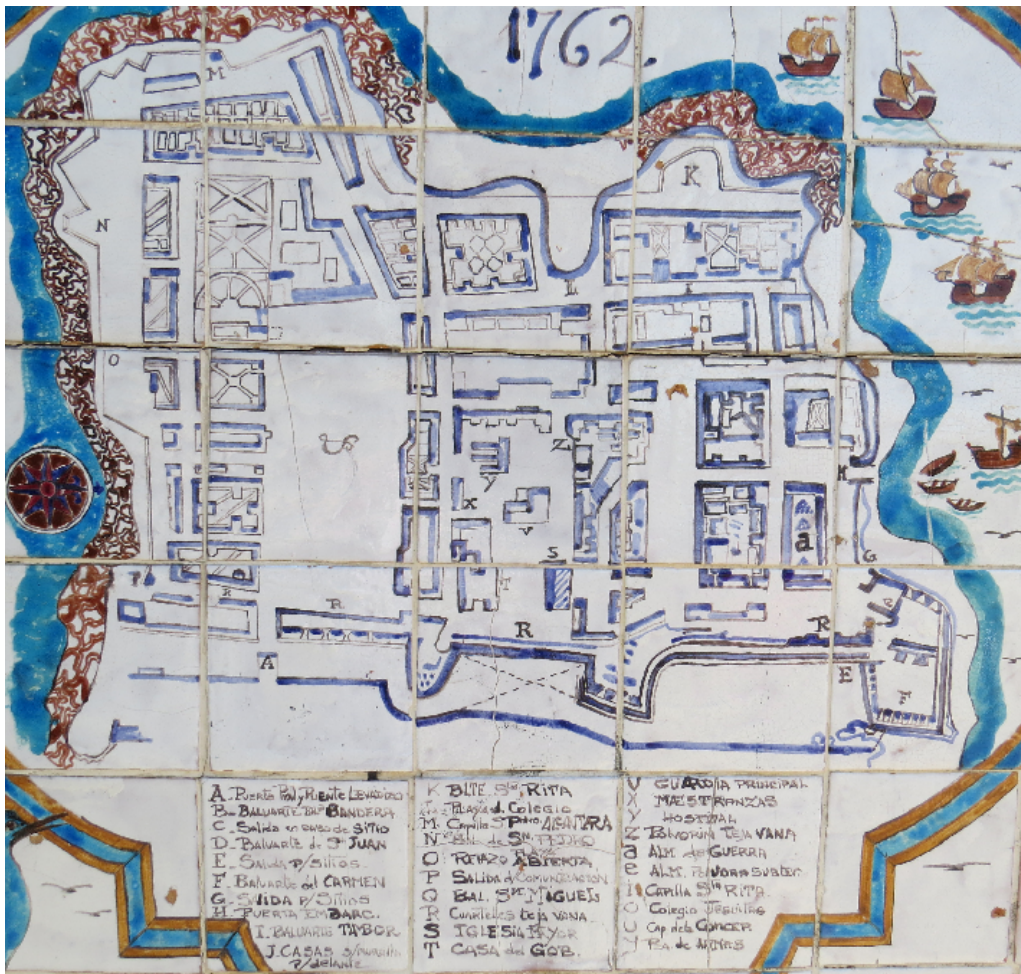 1762.
M
K
N
L
O
Z
H
y
X
V
a
S
G
P
T
R
R
e
R
R
A
E
F
A. PUERTA
B. BALUARTE BANDERA
C. Salida en caso de SITIO
D. BALUARTE de Sn JUAN
E. Salida P/ Sitios.
F. BALUARTE del CARMEN
G. SALIDA P/ Sitios
H. PUERTA EMBARC.
I. BALUARTE TAMBOR
J. CASAS
P/ delante
K BLTE. Sta RITA
Playa d. Colegio
M. Capilla S. Pedro ALCANTARA
N. de Sn. PEDRO
O ABIERTA
P SALIDA d COMUNICACION
Q BAL. Sn MIGUEL
R Cuarteles teja VANA.
S IGLESIA MYOR
T CASA del GOB.
V GUARDIA PRINCIPAL
X MAESTRANZAS
y HOSPITAL
Z POLVORIN TEJA VANA
a ALM. de GUERRA
e ALM. POLVORA SUBTER.
CAPILLA Sta RITA.
O Colegio JESUITAS
U Cap de la CONCEP.
y Pza de ARMAS